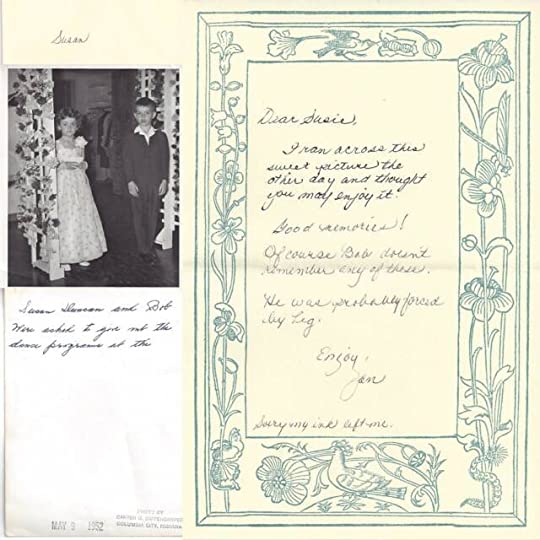 Susan
Susan Duncan and Bob
Were asked to give out the
dance programs at the
MAY 9 1952
PHOTO BY
COLUMBIA CITY, INDIANA
Dear Susie,
I ran across this
sweet picture the
other day and thought
you may enjoy it.
Good memories!
Of course Bob doesn't
remember any of these.
He was probably forced
by
Enjoy,
Jan
Sorry my ink left me.